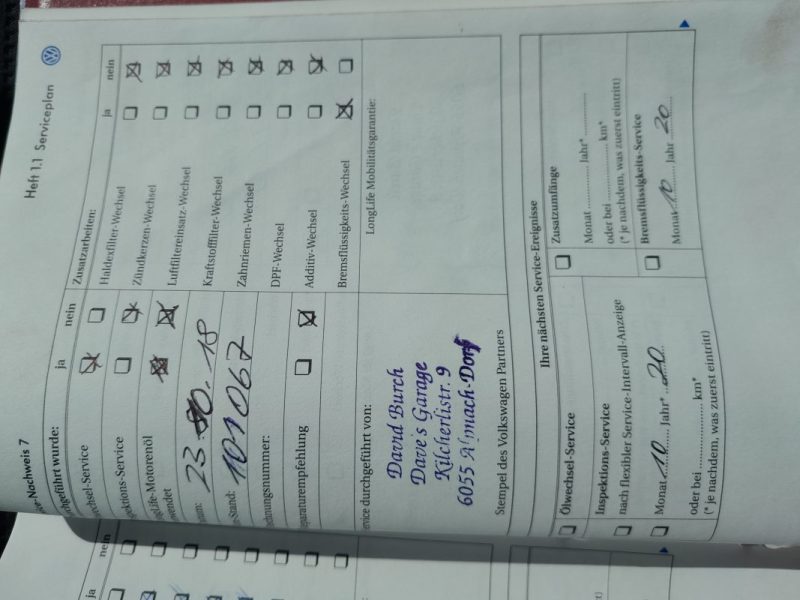 Heft 1.1 Serviceplan
-Nachweis 7
durchgeführt wurde:
ja nein
-Service
-Service
LongLife-Motorenöl
23. 10. 18
101 067
Reparaturempfehlung
Zusatzarbeiten:
ja nein
Haldexfilter-Wechsel
Zündkerzen-Wechsel
Luftfiltereinsatz-Wechsel
Kraftstofffilter-Wechsel
Zahnriemen-Wechsel
DPF-Wechsel
Additiv-Wechsel
Bremsflüssigkeits-Wechsel
durchgeführt von:
David Burch
Dave's Garage
Kilcherlistr. 9
6055 Alpnach-Dorf
Stempel des Volkswagen Partners
LongLife Mobilitätsgarantie:
Ihre nächsten Service-Ereignisse
Ölwechsel-Service
Inspektions-Service
nach flexibler Service-Intervall-Anzeige
Monat 10 Jahr* 20
oder bei .................... km*
(* je nachdem, was zuerst eintritt)
Zusatzumfänge
Monat ............ Jahr* ............
oder bei .................... km*
(* je nachdem, was zuerst eintritt)
Bremsflüssigkeits-Service
Monat 10 Jahr 20
ja
nein